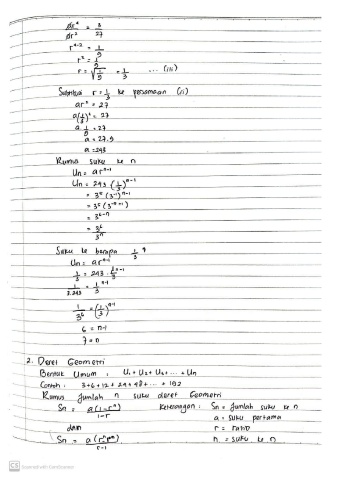 ar⁴ / ar² = 3/27
r⁴⁻² = 1/9
r² = 1/9
r = √1/9 = 1/3 ... (iii)
Substitusi r = 1/3 ke persamaan (i)
ar² = 27
a(1/3)² = 27
a 1/9 = 27
a = 27.9
a = 243
Rumus suku ke n
Un = ar^(n-1)
Un = 243 . (1/3)^(n-1)
= 3⁵ (3⁻¹)^(n-1)
= 3⁵ (3^(-n+1))
= 3^(6-n)
= 3⁶/3ⁿ
Suku ke berapa 1/3 ?
Un = ar^(n-1)
1/3 = 243 . 1/3^(n-1)
1/3.243 = 1/3^(n-1)
1/3⁶ = (1/3)^(n-1)
6 = n-1
7 = n
2. Deret Geometri
Bentuk Umum : U₁ + U₂ + U₃ + ... + Un
Contoh : 3+6+12+24+48+ ... + 192
Rumus jumlah n suku deret Geometri
Sn = a(1-rⁿ) / 1-r Keterangan : Sn = Jumlah suku ke n
a = suku pertama
dan r = rasio
Sn = a(rⁿ / r-1 n = suku ke n
CS Scanned with CamScanner